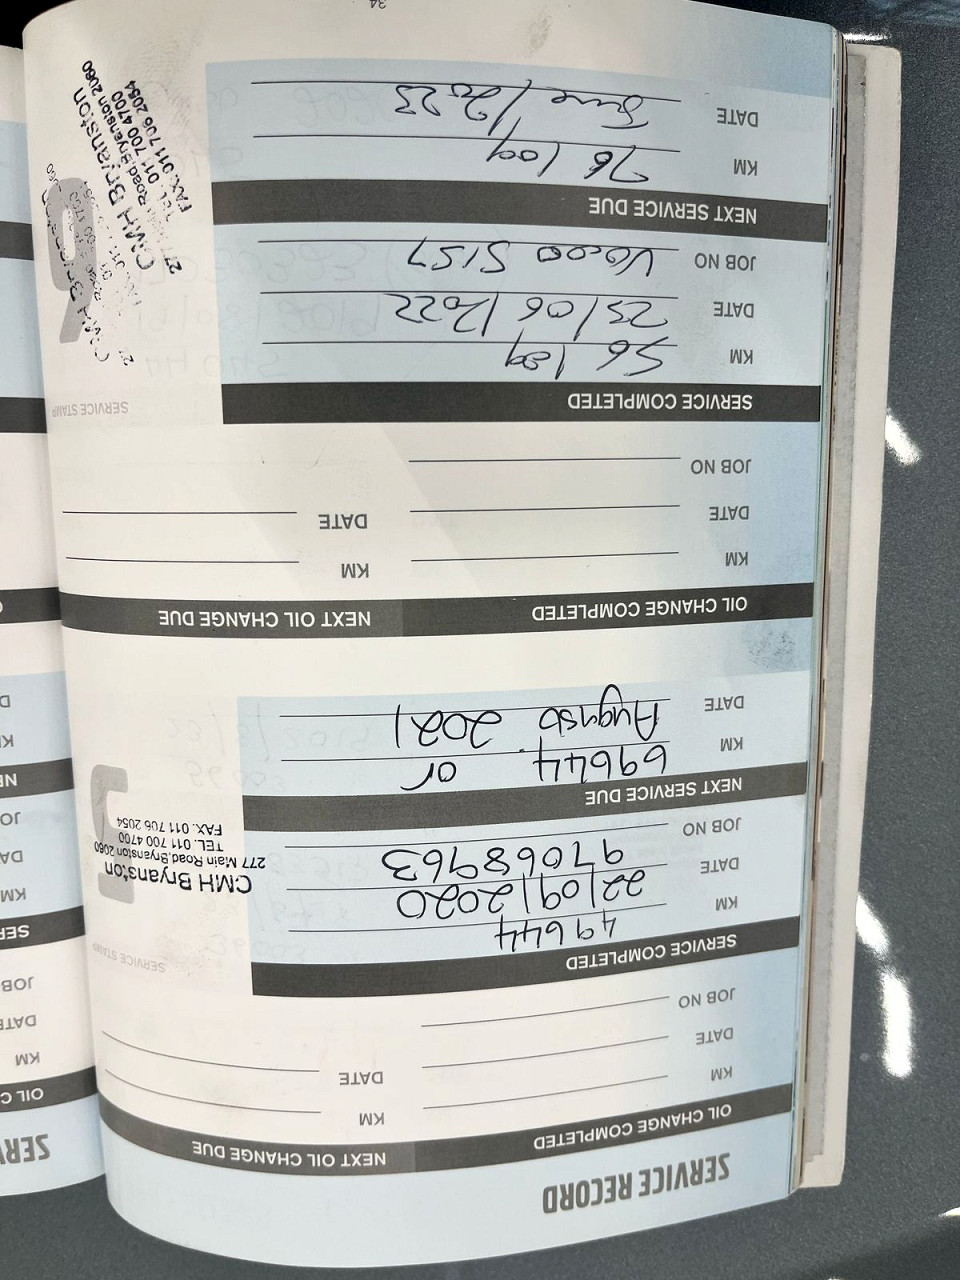 SERVICE RECORD
OIL CHANGE COMPLETED
NEXT OIL CHANGE DUE
KM
KM
DATE
DATE
JOB NO
SERVICE COMPLETED
SERVICE STAMP
49644
KM 22/09/2020
DATE 97068963
JOB NO
CMH Bryanston
277 Main Road, Bryanston 2060
TEL. 011 700 4700
FAX. 011 706 2054
NEXT SERVICE DUE
KM 69644 or
DATE August 2021
OIL CHANGE COMPLETED
NEXT OIL CHANGE DUE
KM
KM
DATE
DATE
JOB NO
SERVICE COMPLETED
SERVICE STAMP
KM 56109
DATE 23/06/2022
JOB NO
NEXT SERVICE DUE
KM 76109
DATE June/2023
CMH Bryanston
TEL: 011 700 4700
FAX: 011 706 2054
34
SERV
OIL C
KM
DATE
JOB
SER
KM
DA
JO
NE
KM
D